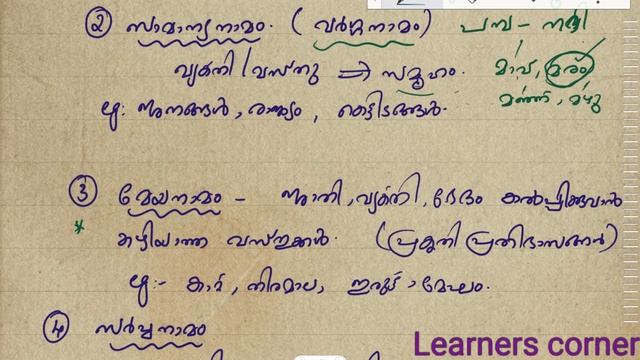 ② സാമാന്യനാമം. (വർഗ്ഗനാമം) പമ്പ - നദി
വ്യക്തി / വസ്തു ⇒ സമൂഹം. മാവ്, മരം
ഉദ: ജനങ്ങൾ, രാജ്യം, കെട്ടിടങ്ങൾ. മണ്ണ്, മഴു
③ മേയനാമം - ജാതി, വ്യക്തി, ഭേദം കൽപ്പിക്കുവാൻ
* കഴിയാത്ത വസ്തുക്കൾ. (പ്രകൃതി പ്രതിഭാസങ്ങൾ)
ഉദ:- കാറ്റ്, നിരമാല, ഇരുട്ട്, മേഘം.
④ സർവ്വനാമം
Learners corner